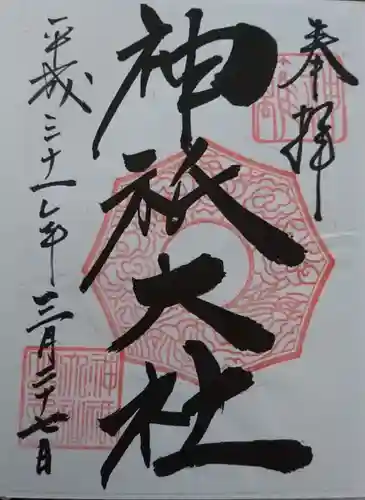 奉拝
神祇大社
平成三十一年三月二十七日